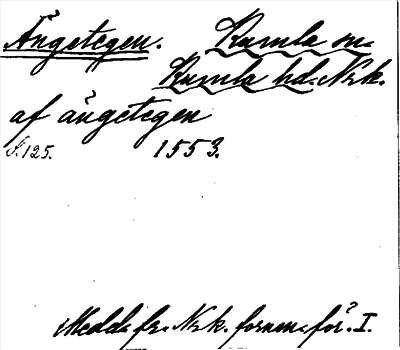 Ängetegen. Kumla sn.
Kumla hd. Nrk.
af ängetegen
S. 125. 1553.
Medd. fr. Nrk. fornm.för. I.